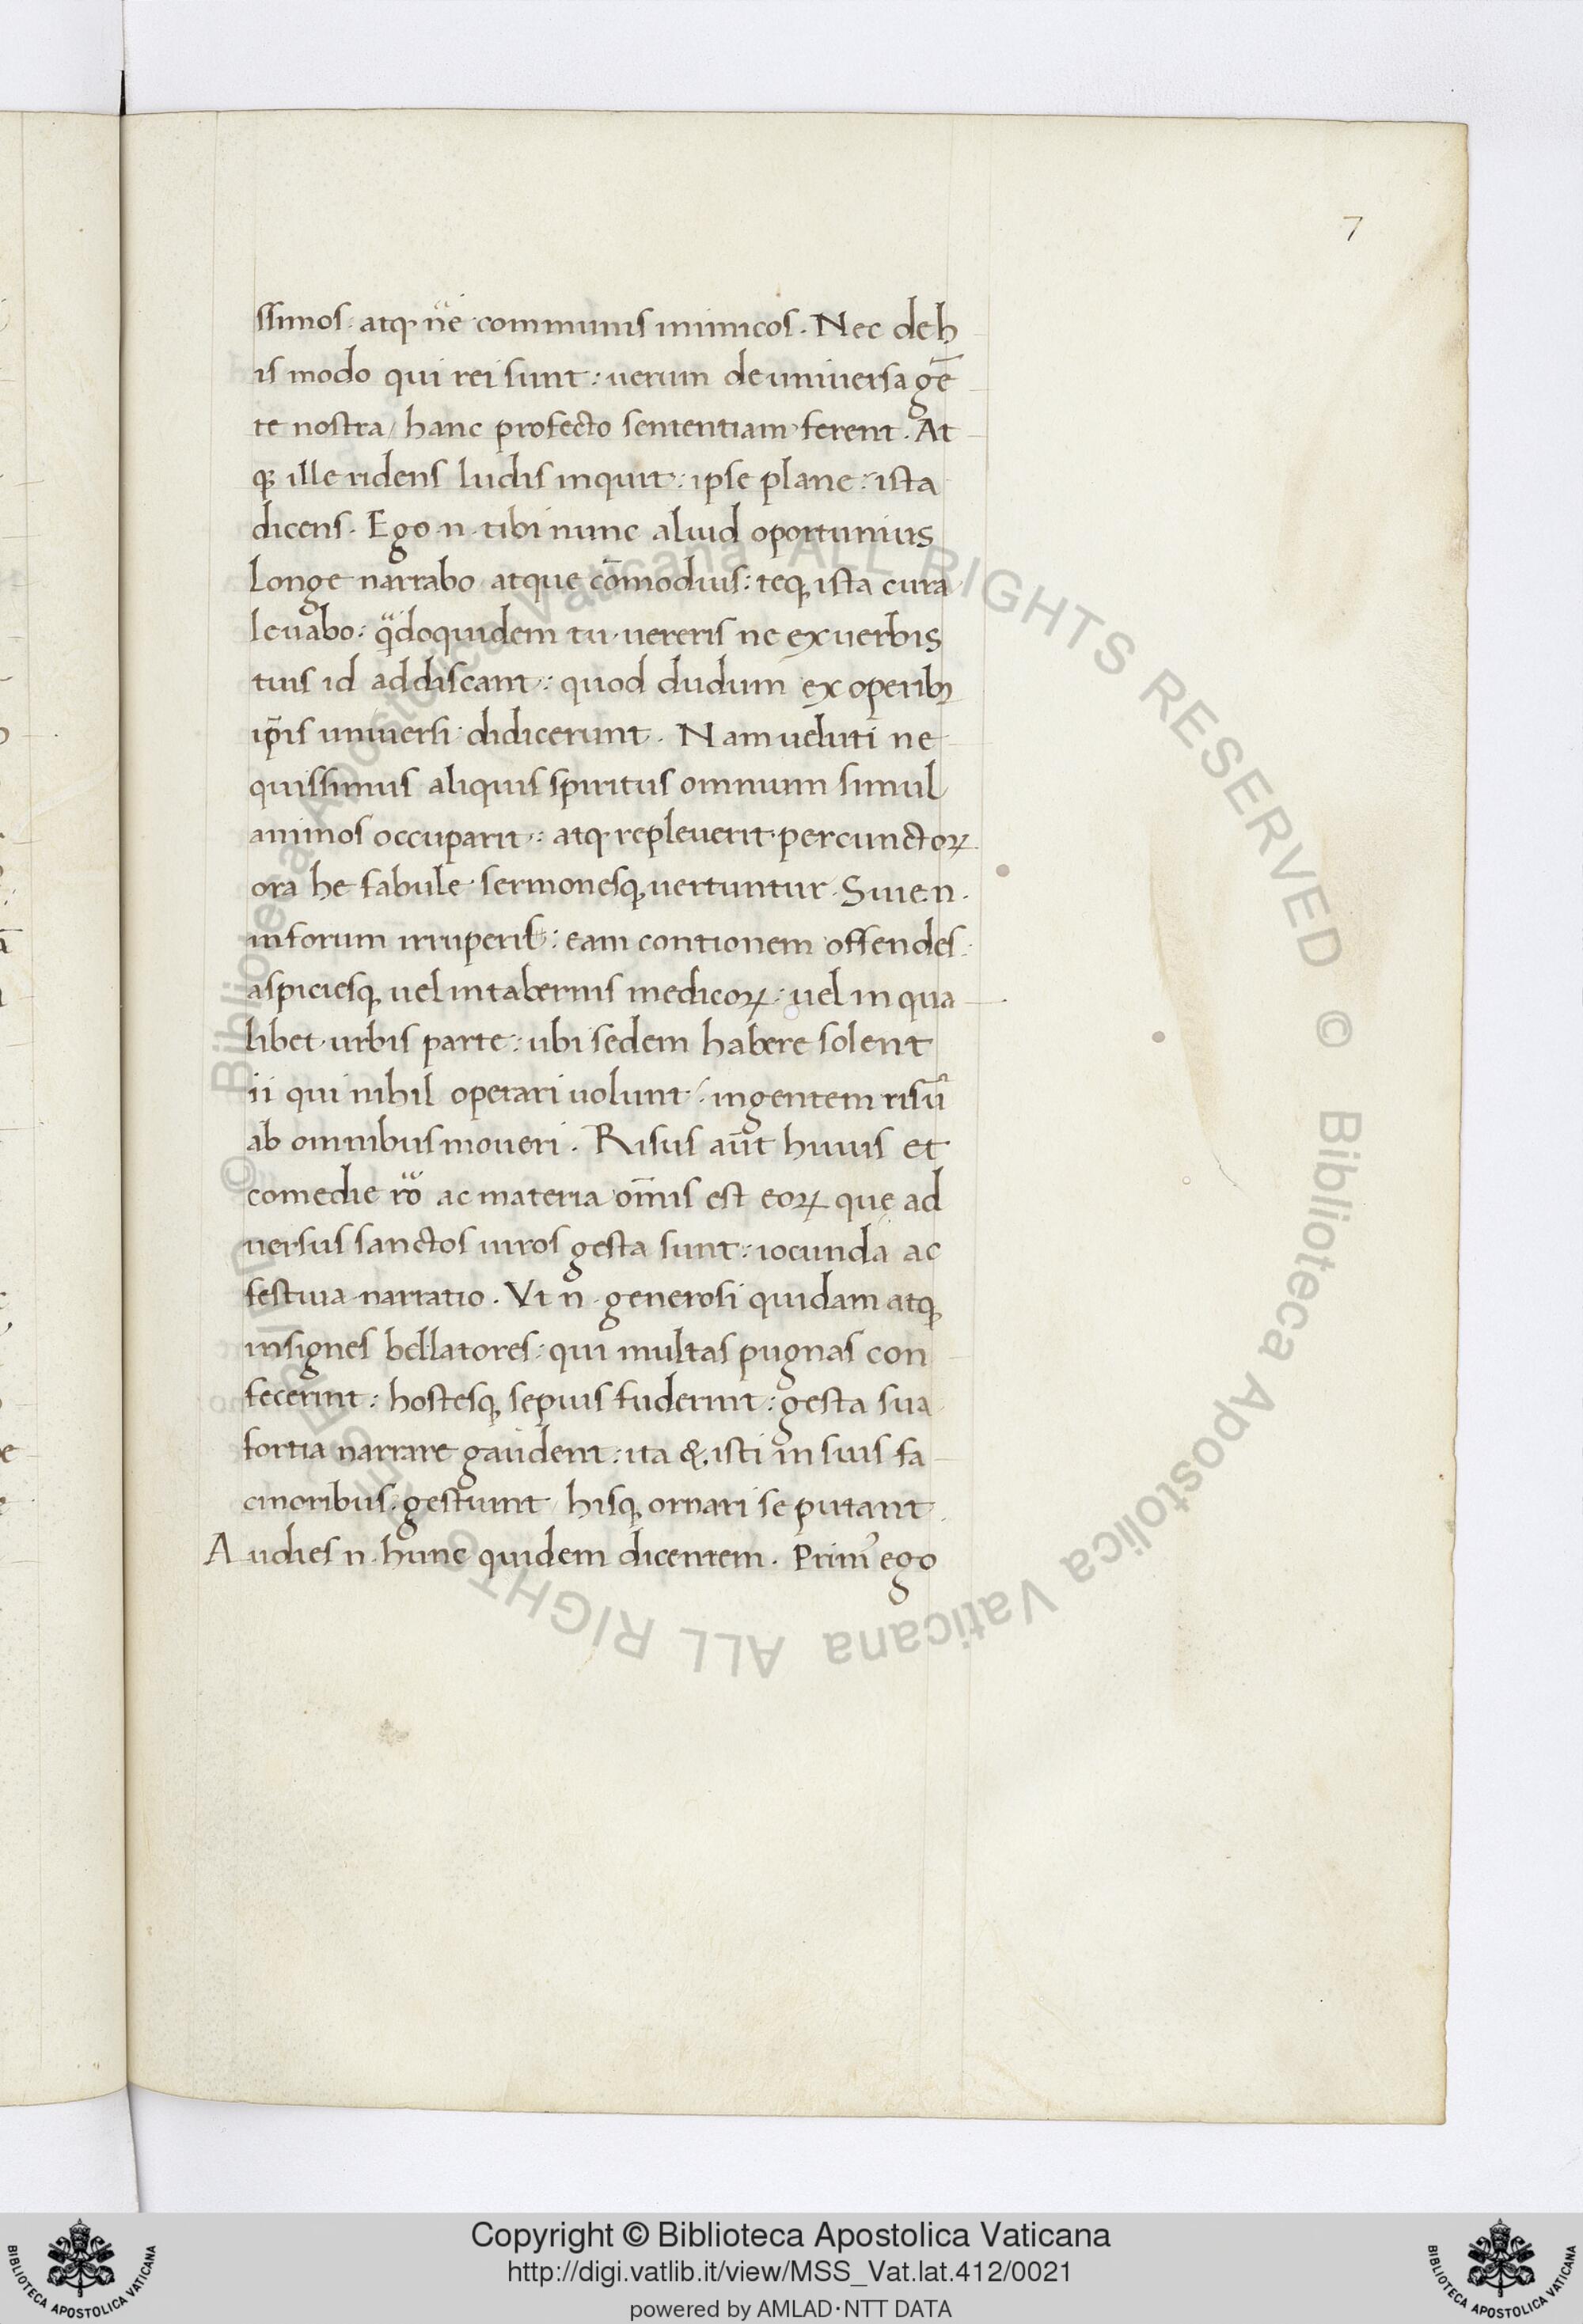 7
ssimos· atqꝫ nͣe communis inimicos. Nec de h
is modo qui rei sunt: uerum de uniuersa gē
te nostra/ hanc profecto sententiam ferent. At
qꝫ ille ridens ludis inquit: ipse plane: ista
dicens. Ego·n·tibi nunc aliud oportunius
longe narrabo atque cōmodius: teqꝫ ista cura
leuabo: qͣdoquidem tu uereris ne ex uerbis
tuis id addiscant: quod dudum ex operibꝫ
ip̄is uniuersi didicerunt. Nam ueluti ne
quissimus aliquis spiritus omnium simul
animos occuparit: atqꝫ repleuerit· per cunctoꝝ
ora he fabule sermonesqꝫ uertuntur. Siue·n·
in forum irruperis: eam contionem offendes·
aspiciesqꝫ uel in tabernis medicoꝝ: uel in qua
libet urbis parte: ubi sedem habere solent
ii qui nihil operari uolunt/ ingentem risū
ab omnibus moueri. Risus aūt huius et
comedie rͦo ac materia om̄is est eoꝝ que ad
uersus sanctos uiros gesta sunt: iocunda ac
festiua narratio. Vt n· generosi quidam atqꝫ
insignes bellatores: qui multas pugnas con
fecerint: hostesqꝫ sepius fuderint: gesta sua
fortia narrare gaudent: ita &·isti in suis fa
cinoribus gestiunt/ hisqꝫ ornari se putant.
Audies n·hunc quidem dicentem. Primꝰ ego
© Biblioteca Apostolica Vaticana ALL RIGHTS RESERVED © Biblioteca Apostolica Vaticana ALL RIGHTS RESERVED
Copyright © Biblioteca Apostolica Vaticana
http://digi.vatlib.it/view/MSS_Vat.lat.412/0021
powered by AMLAD·NTT DATA
BIBLIOTECA APOSTOLICA VATICANA
BIBLIOTECA APOSTOLICA VATICANA